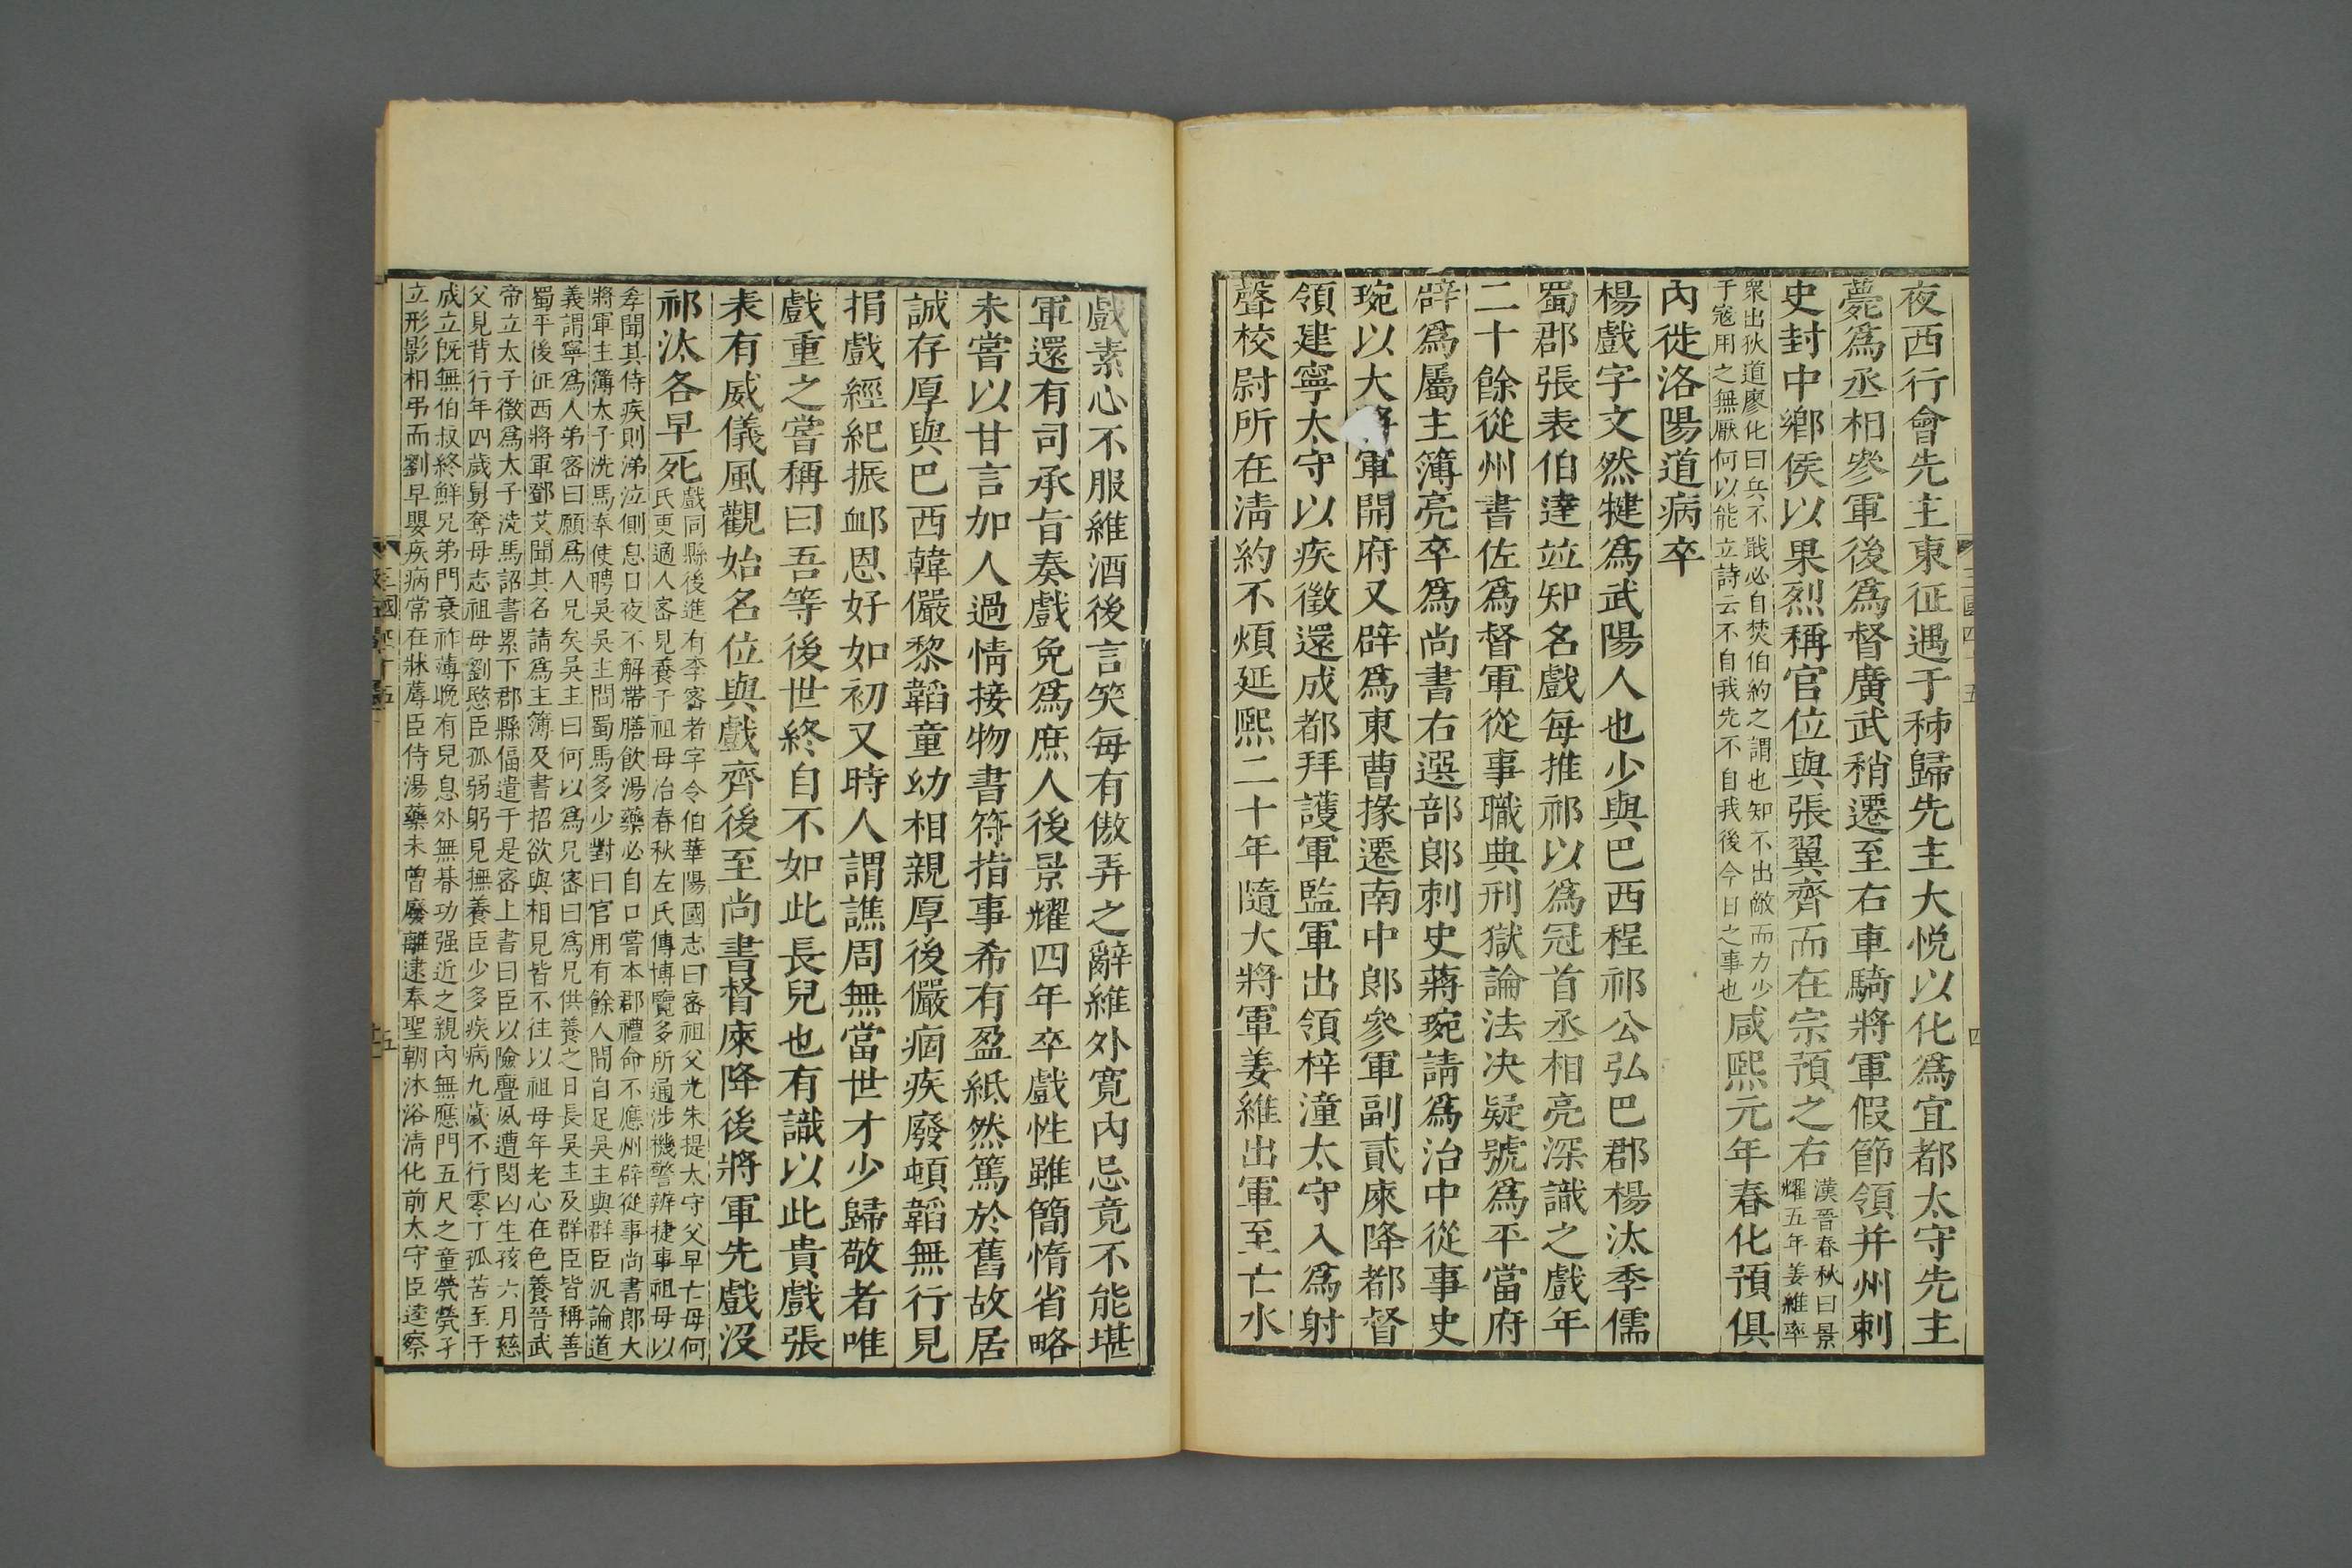 夜西行會先主東征遇于秭歸先主大悅以化爲宜都太守先主
薨爲丞相參軍後爲督廣武稍遷至右車騎將軍假節領并州刺
史封中鄉侯以果烈稱官位與張翼齊而在宗預之右漢晉春秋曰景
耀五年姜維率
衆出狄道廖化曰兵不戢必自焚伯約之謂也知不出敵而力少
于寇用之無厭何以能立詩云不自我先不自我後今日之事也咸熙元年春化預俱
內徙洛陽道病卒
楊戲字文然犍爲武陽人也少與巴西程祁公弘巴郡楊汰季儒
蜀郡張表伯達竝知名戲每推祁以爲冠首丞相亮深識之戲年
二十餘從州書佐爲督軍從事職典刑獄論法決疑號爲平當府
辟爲屬主簿亮卒爲尚書右選部郎刺史蔣琬請爲治中從事史
琬以大將軍開府又辟爲東曹掾遷南中郎參軍副貳庲降都督
領建寧太守以疾徵還成都拜護軍監軍出領梓潼太守入爲射
聲校尉所在淸約不煩延熙二十年隨大將軍姜維出軍至亡水
戲素心不服維酒後言笑每有傲弄之辭維外寬內忌竟不能堪
軍還有司承旨奏戲免爲庶人後景耀四年卒戲性雖簡惰省略
未嘗以甘言加人過情接物書符指事希有盈紙然篤於舊故居
誠存厚與巴西韓儼黎韜童幼相親厚後儼痼疾廢頓韜無行見
捐戲經紀振卹恩好如初又時人謂譙周無當世才少歸敬者唯
戲重之嘗稱曰吾等後世終自不如此長兒也有識以此貴戲張
表有威儀風觀始名位與戲齊後至尚書督庲降後將軍先戲沒
祁汰各早死戲同縣後進有李密者字令伯華陽國志曰密祖父光朱提太守父早亡母何
氏更適人密見養于祖母治春秋左氏傳博覽多所通涉機警辨捷事祖母以
孝聞其侍疾則涕泣側息日夜不解帶膳飲湯藥必自口嘗本郡禮命不應州辟從事尚書郎大
將軍主簿太子洗馬奉使聘吳吳主問蜀馬多少對曰官用有餘人間自足吳主與群臣汎論道
義謂寧爲人弟密曰願爲人兄矣吳主曰何以爲兄密曰爲兄供養之日長吳主及群臣皆稱善
蜀平後征西將軍鄧艾聞其名請爲主簿及書招欲與相見皆不往以祖母年老心在色養晉武
帝立太子徵爲太子洗馬詔書累下郡縣偪遣于是密上書曰臣以險釁夙遭閔凶生孩六月慈
父見背行年四歲舅奪母志祖母劉愍臣孤弱躬見撫養臣少多疾病九歲不行零丁孤苦至于
成立旣無伯叔終鮮兄弟門衰祚薄晚有兒息外無朞功强近之親內無應門五尺之童煢煢孑
立形影相弔而劉早嬰疾病常在牀蓐臣侍湯藥未曾廢離逮奉聖朝沐浴淸化前太守臣逵察